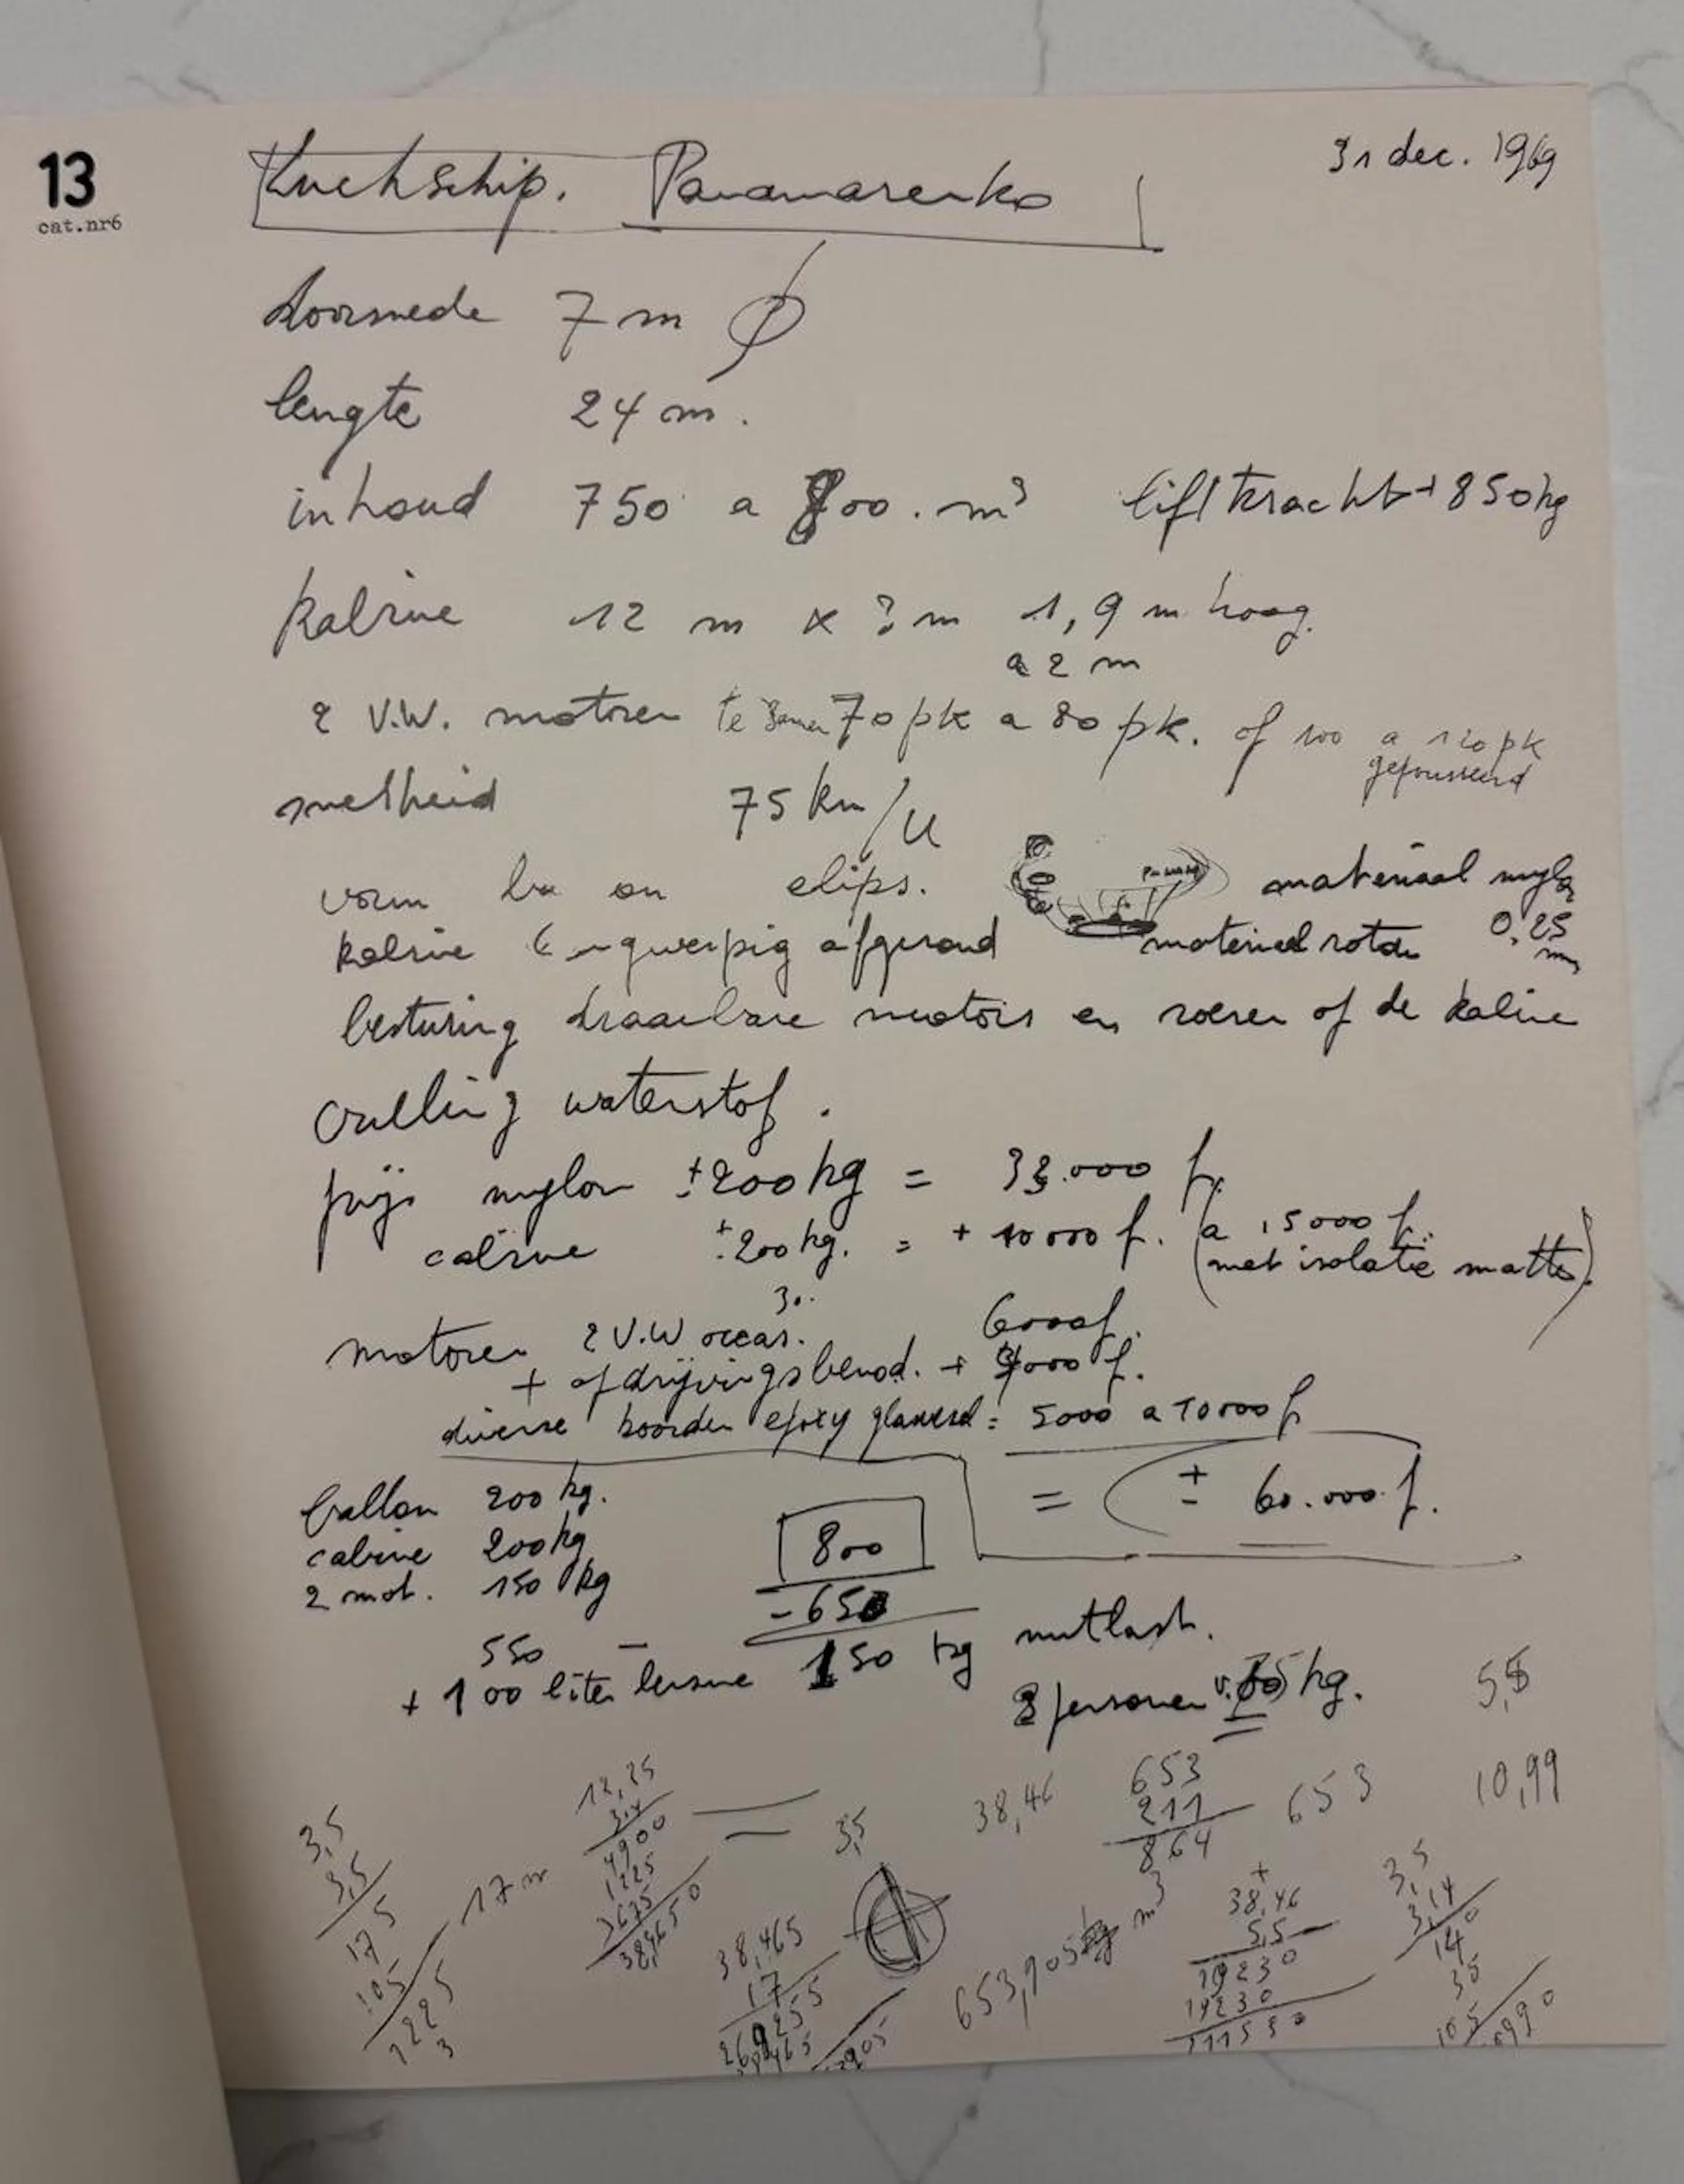 13
cat.nr6
Luchtschip. Panamarenko
31 dec. 1969
doorsnede 7 m ϕ
lengte 24 m.
inhoud 750 a 800. m³ liftkracht + 850 kg
kabine 12 m x 3 m 1,9 m hoog.
a 2 m
2 V.W. motoren te samen 70 pk a 80 pk. of 100 a 120 pk
geforceerd
snelheid 75 km/u
vorm elips. materiaal mylar
0,25 mm
kabine afgerond materieel rotan
besturing draaibare motors en roeren of de kabine
vulling waterstof.
prijs mylon ± 200 kg = 33.000 f.
cabine ± 200 kg. = + 10000 f. (a 15000 f.
(met isolatie matten)
30..
motoren 2 V.W occas. 6000 f.
+ afdrijvingsbenod. + 4000 f.
diverse boorden epoxy glasvezel = 5000 a 10000 f
= ± 60.000 f.
ballon 200 kg.
cabine 200 kg
2 mot. 150 kg
550 –
+ 100 liter bensine
800
- 650
150 kg nutlast.
2 personen v. 75 kg.
5,5
10,99
3,5
3,5
175
105
1225
3
17 m
12,25
3,14
4900
1225
3675
38,4650
=
3,5
38,46
653
211
864
653
38,465
17
653,905 m³
+
38,46
5,5
19230
19230
211530
3,5
3,14
140
35
105